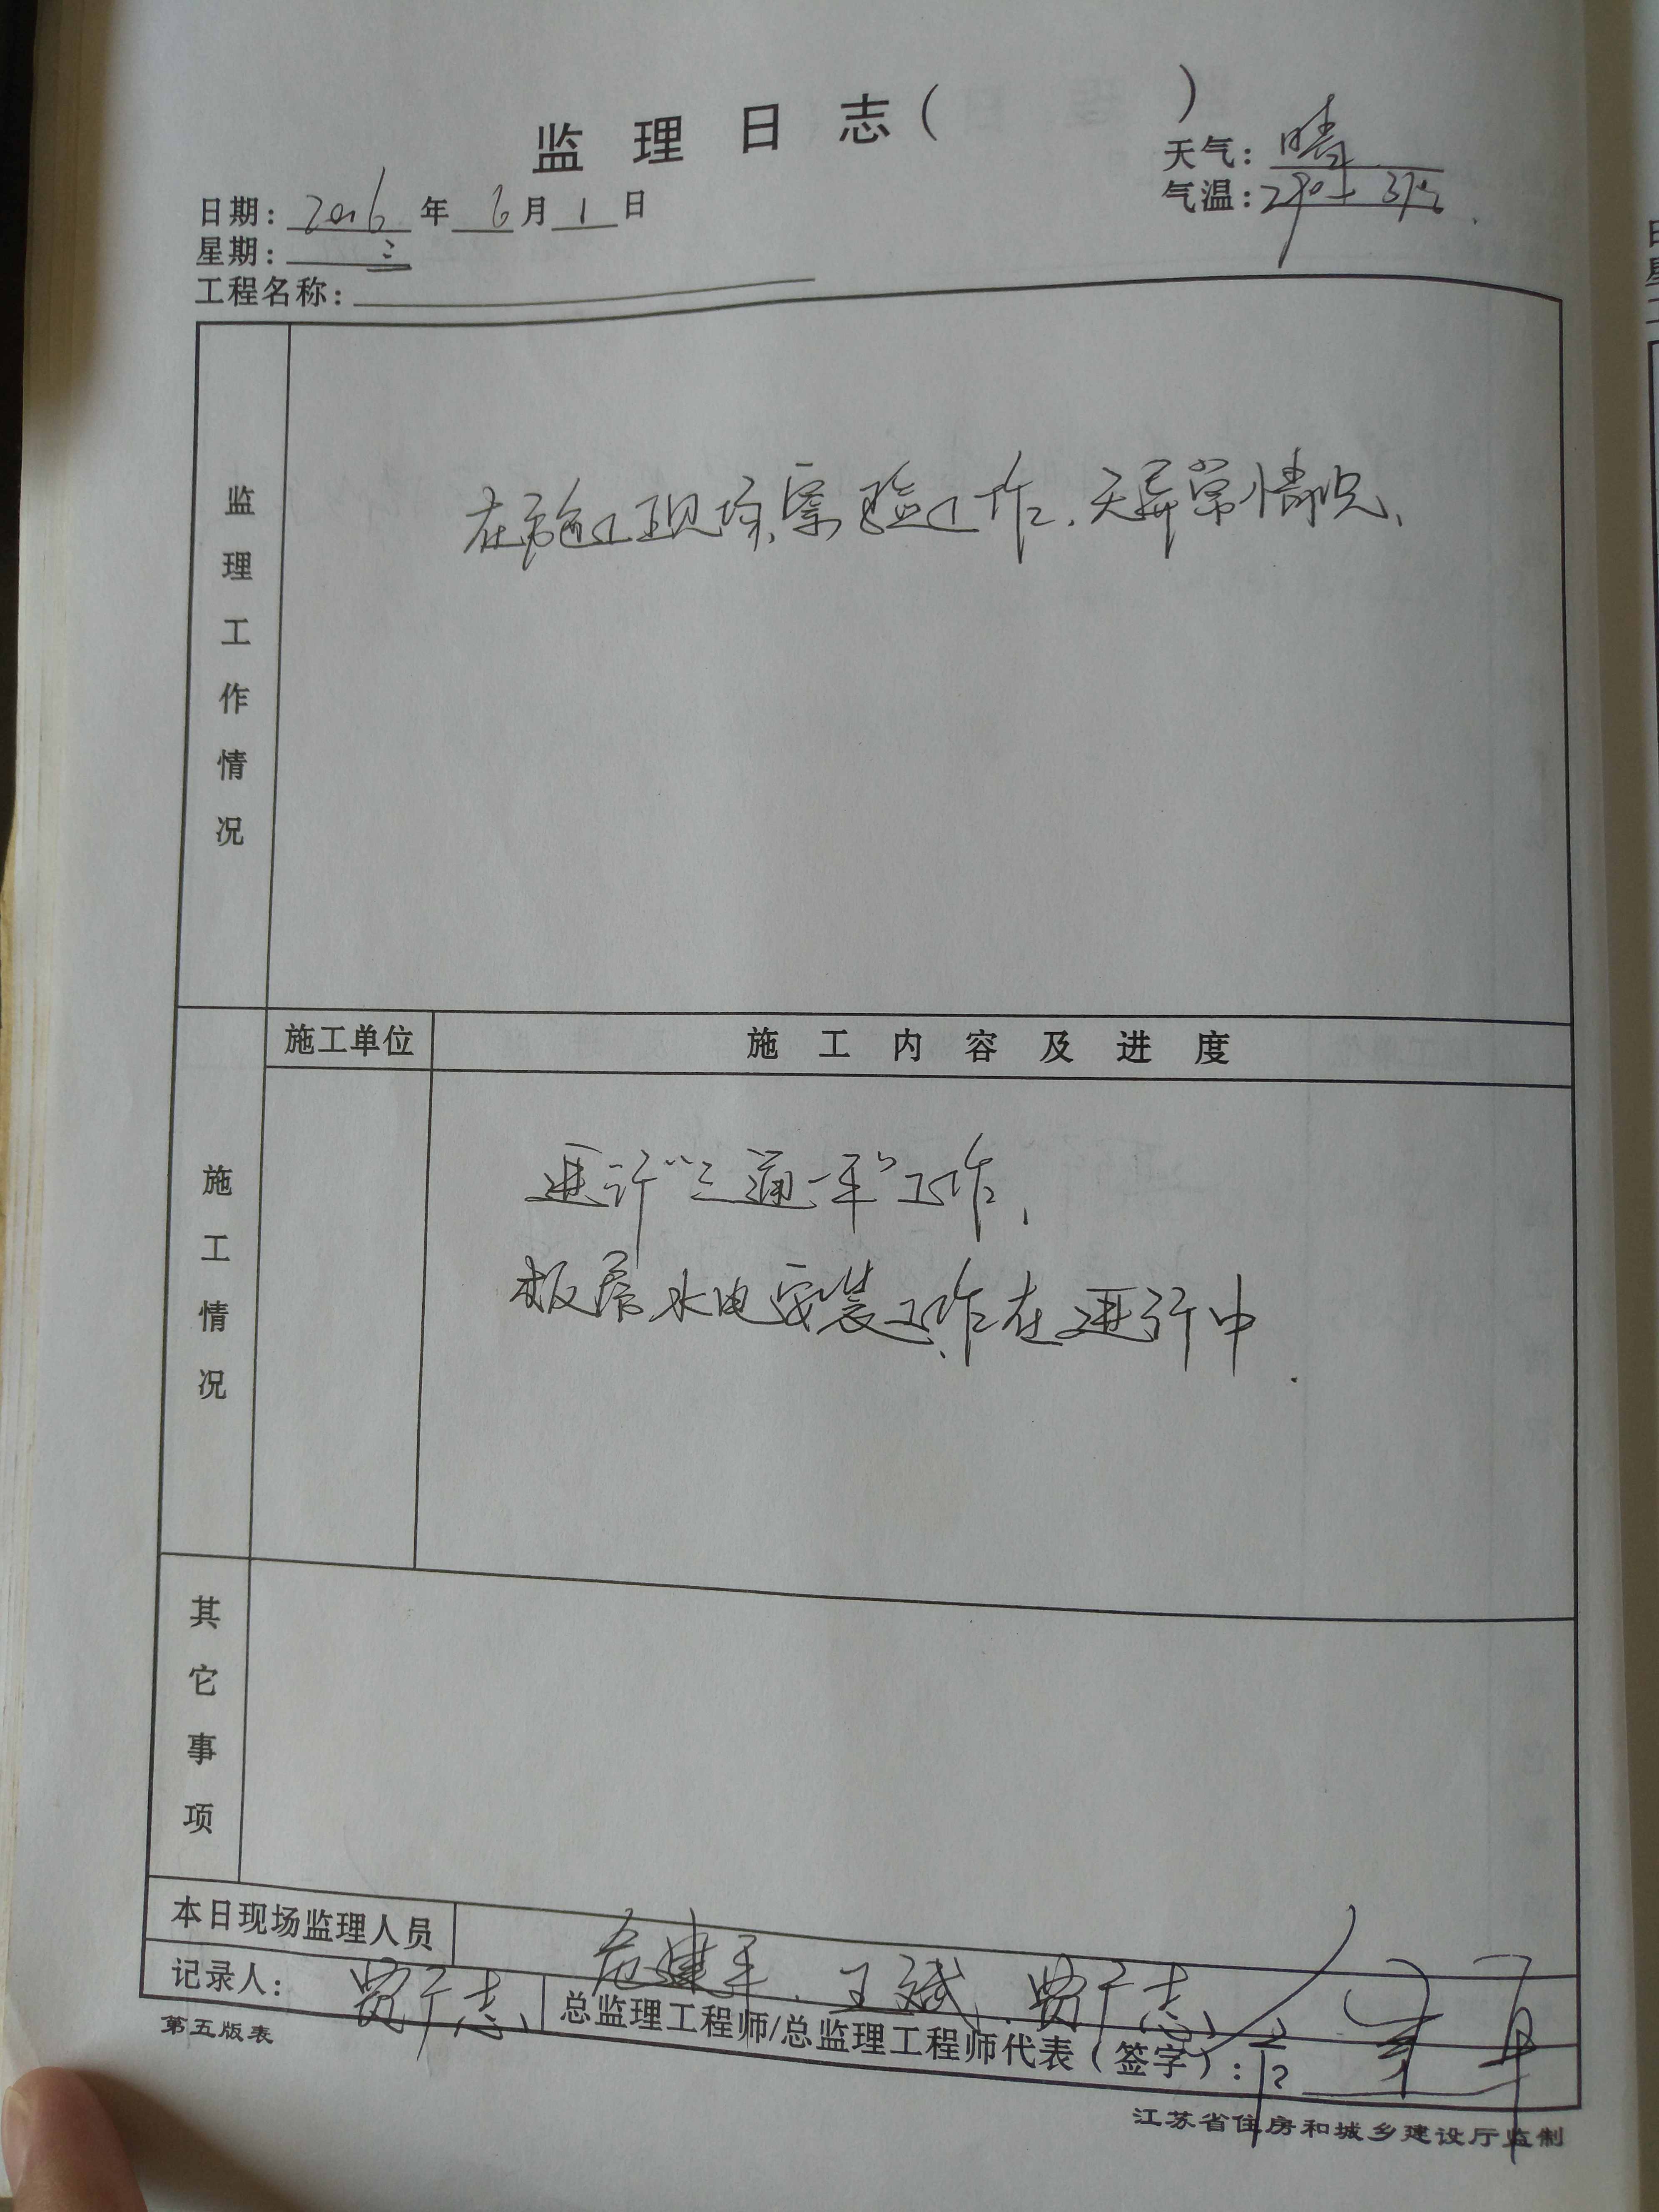 监理日志（ ）
天气：晴
气温：
日期：2016年6月1日
星期：三
工程名称：
监理工作情况
在施工现场 工作、无异常情况、
施工单位
施工内容及进度
施工情况
进行“三通一平”工作、
板房水电安装工作在进行中.
其它事项
本日现场监理人员
建平、王斌、贾广志
记录人：贾广志
总监理工程师/总监理工程师代表（签字）：
第五版表
江苏省住房和城乡建设厅监制